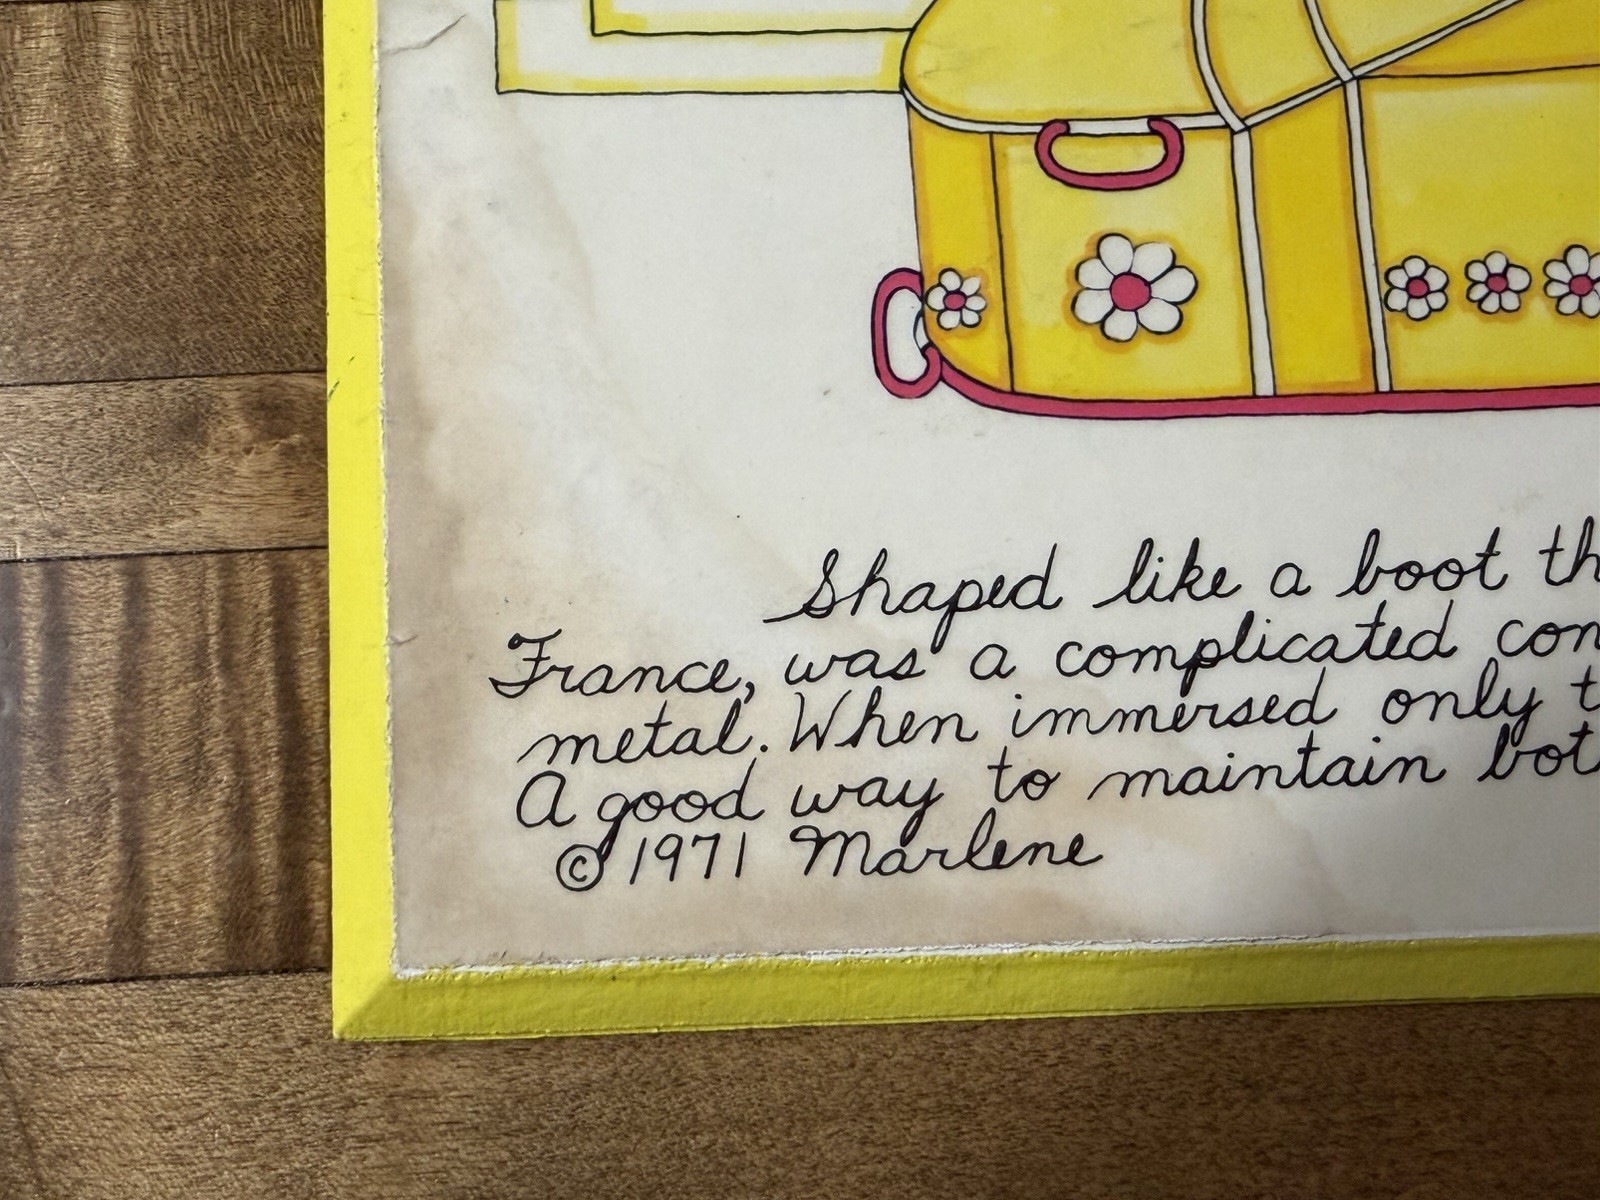 Shaped like a boot th
France, was a complicated con
metal. When immersed only t
A good way to maintain bot
© 1971 Marlene